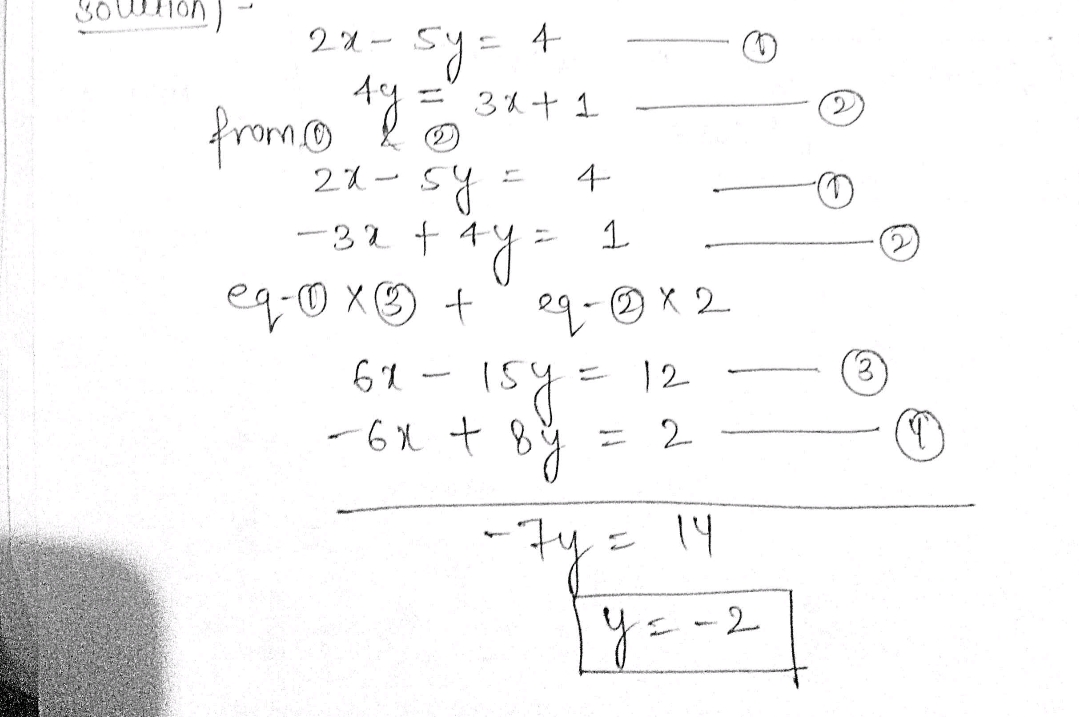 solution) -
2x - 5y = 4 —— ①
4y = 3x + 1 —— ②
from ① & ②
2x - 5y = 4 —— ①
-3x + 4y = 1 —— ②
eq-① X ③ + eq-② X 2
6x - 15y = 12 —— ③
-6x + 8y = 2 —— ④
-7y = 14
y = -2